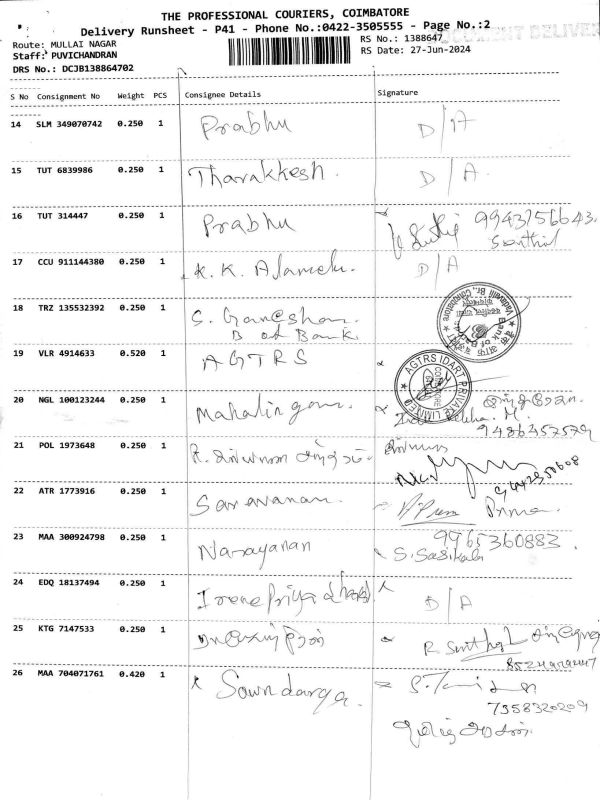 THE PROFESSIONAL COURIERS, COIMBATORE
Delivery Runsheet - P41 - Phone No.:0422-3505555 - Page No.:2
Route: MULLAI NAGAR
RS No.: 1388647
Staff: PUVICHANDRAN
RS Date: 27-Jun-2024
DRS No.: DCJB138864702
S No Consignment No Weight PCS Consignee Details Signature
14 SLM 349070742 0.250 1 Prabhu D/A
15 TUT 6839986 0.250 1 Tharakkesh. D/A.
16 TUT 314447 0.250 1 Prabhu 9943756643.
Senthil
17 CCU 911144380 0.250 1 K.K. Alamelu. D/A
18 TRZ 135532392 0.250 1 S. Ganeshan.
B of Bank.
19 VLR 4914633 0.520 1 AGTRS
AGTRS IDART PRIVATE LIMITED
20 NGL 100123244 0.250 1 Mahalingam.
9486457579
21 POL 1973648 0.250 1
22 ATR 1773916 0.250 1 Saravanan.
23 MAA 300924798 0.250 1 Narayanan 9965360883.
S. Sasikala
24 EDQ 18137494 0.250 1 Irene Priya D/A
25 KTG 7147533 0.250 1
26 MAA 704071761 0.420 1 Soundarya.
7358320209